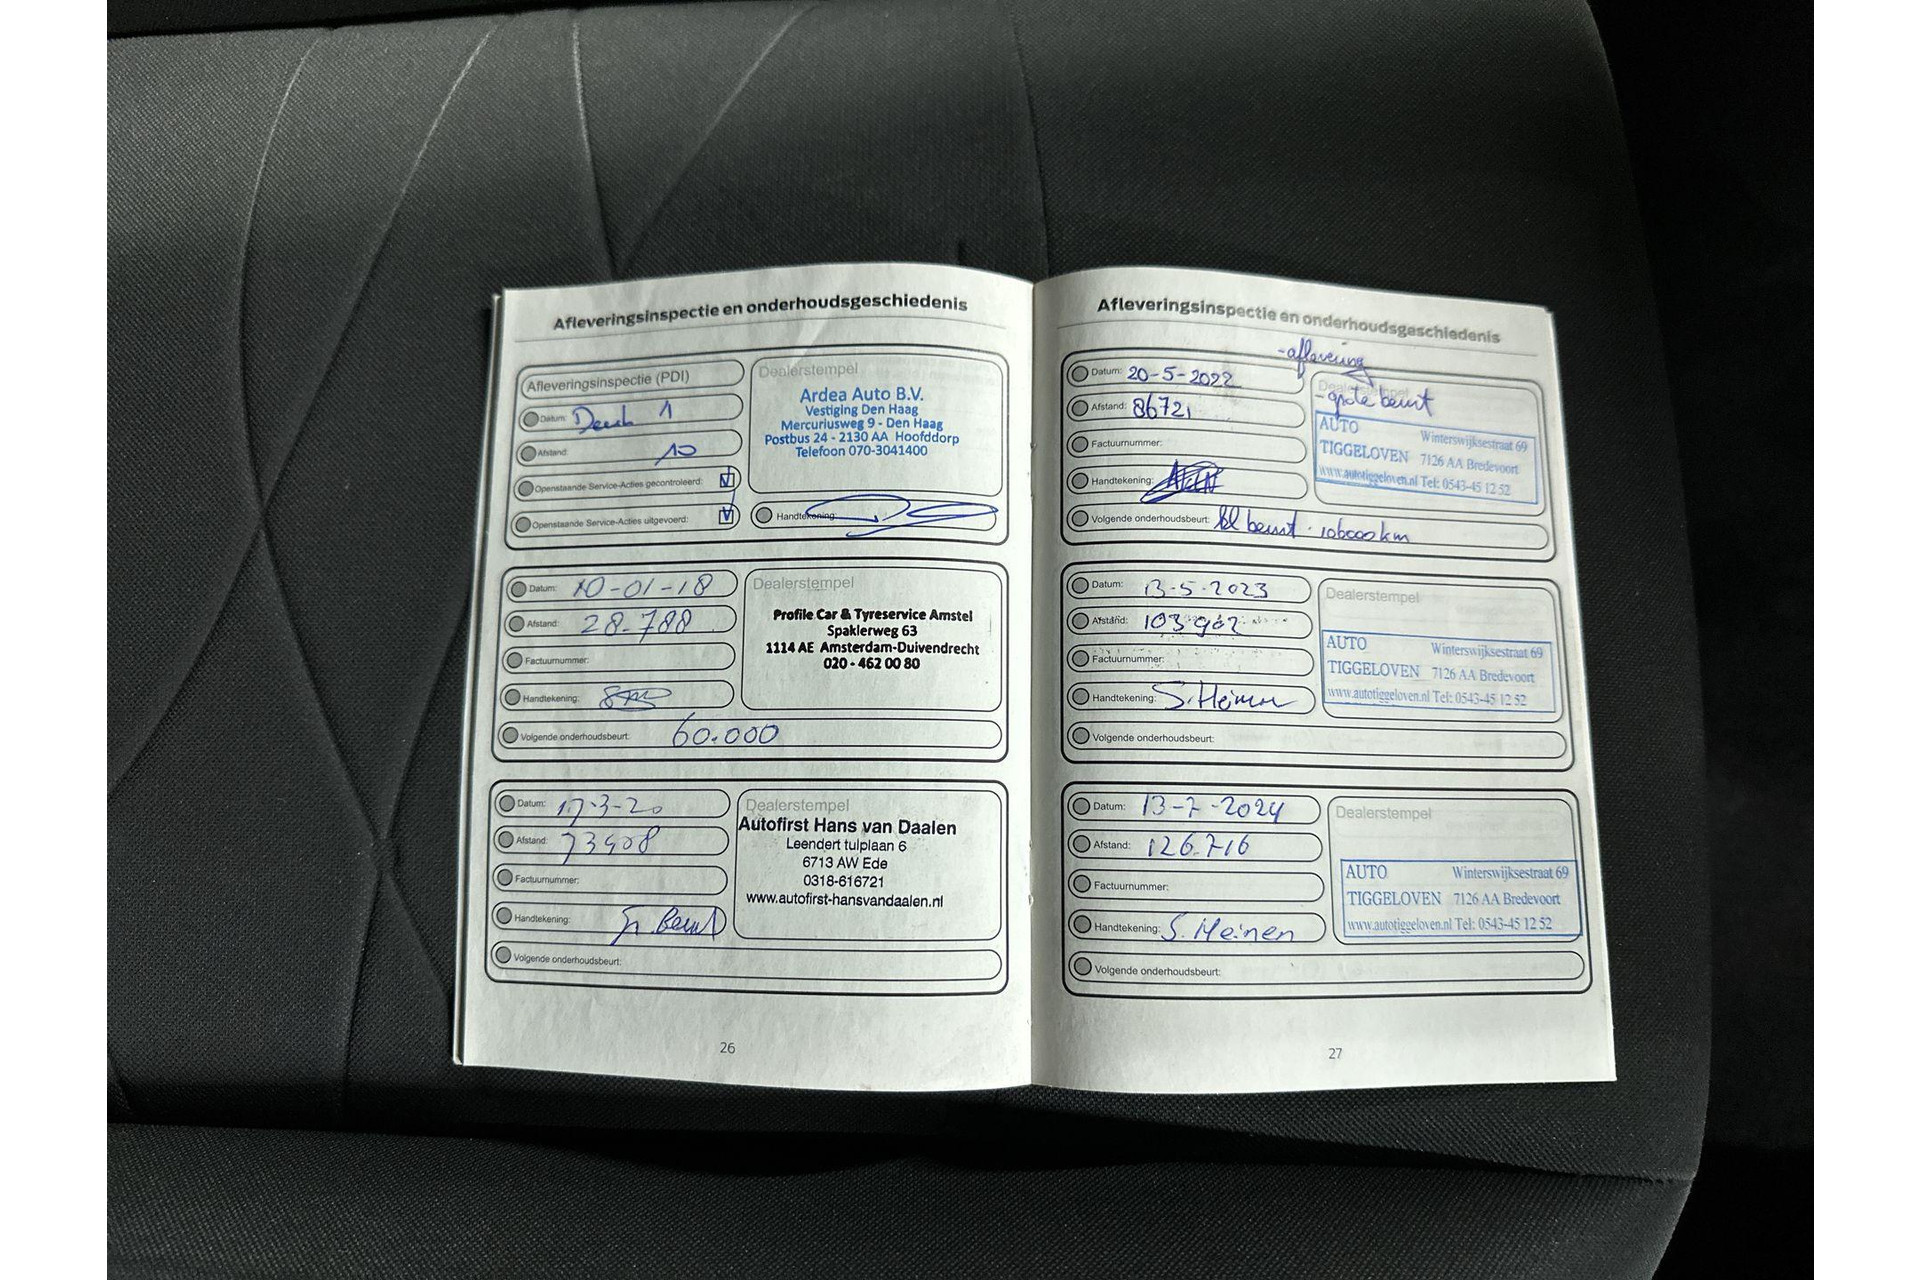 Afleveringsinspectie en onderhoudsgeschiedenis
Afleveringsinspectie (PDI)
Datum: 1
Afstand: 10
Openstaande Service-Acties gecontroleerd:
Openstaande Service-Acties uitgevoerd:
Dealerstempel
Ardea Auto B.V.
Vestiging Den Haag
Mercuriusweg 9 - Den Haag
Postbus 24 - 2130 AA Hoofddorp
Telefoon 070-3041400
Handtekening:
Datum: 10-01-18
Afstand: 28.788
Factuurnummer:
Handtekening:
Dealerstempel
Profile Car & Tyreservice Amstel
Spaklerweg 63
1114 AE Amsterdam-Duivendrecht
020 - 462 00 80
Volgende onderhoudsbeurt: 60.000
Datum: 17-3-20
Afstand: 73908
Factuurnummer:
Handtekening:
Dealerstempel
Autofirst Hans van Daalen
Leendert tulplaan 6
6713 AW Ede
0318-616721
www.autofirst-hansvandaalen.nl
Volgende onderhoudsbeurt:
26
Afleveringsinspectie en onderhoudsgeschiedenis
-aflevering
- grote beurt
Datum: 20-5-2022
Afstand: 86721
Factuurnummer:
Handtekening:
Dealerstempel
AUTO Winterswijksestraat 69
TIGGELOVEN 7126 AA Bredevoort
www.autotiggeloven.nl Tel: 0543-45 12 52
Volgende onderhoudsbeurt: kl beurt. 106000 km
Datum: 13-5-2023
Afstand: 103962
Factuurnummer:
Handtekening: S. Heinen
Dealerstempel
AUTO Winterswijksestraat 69
TIGGELOVEN 7126 AA Bredevoort
www.autotiggeloven.nl Tel: 0543-45 12 52
Volgende onderhoudsbeurt:
Datum: 13-7-2024
Afstand: 126.716
Factuurnummer:
Handtekening: S. Heinen
Dealerstempel
AUTO Winterswijksestraat 69
TIGGELOVEN 7126 AA Bredevoort
www.autotiggeloven.nl Tel: 0543-45 12 52
Volgende onderhoudsbeurt:
27